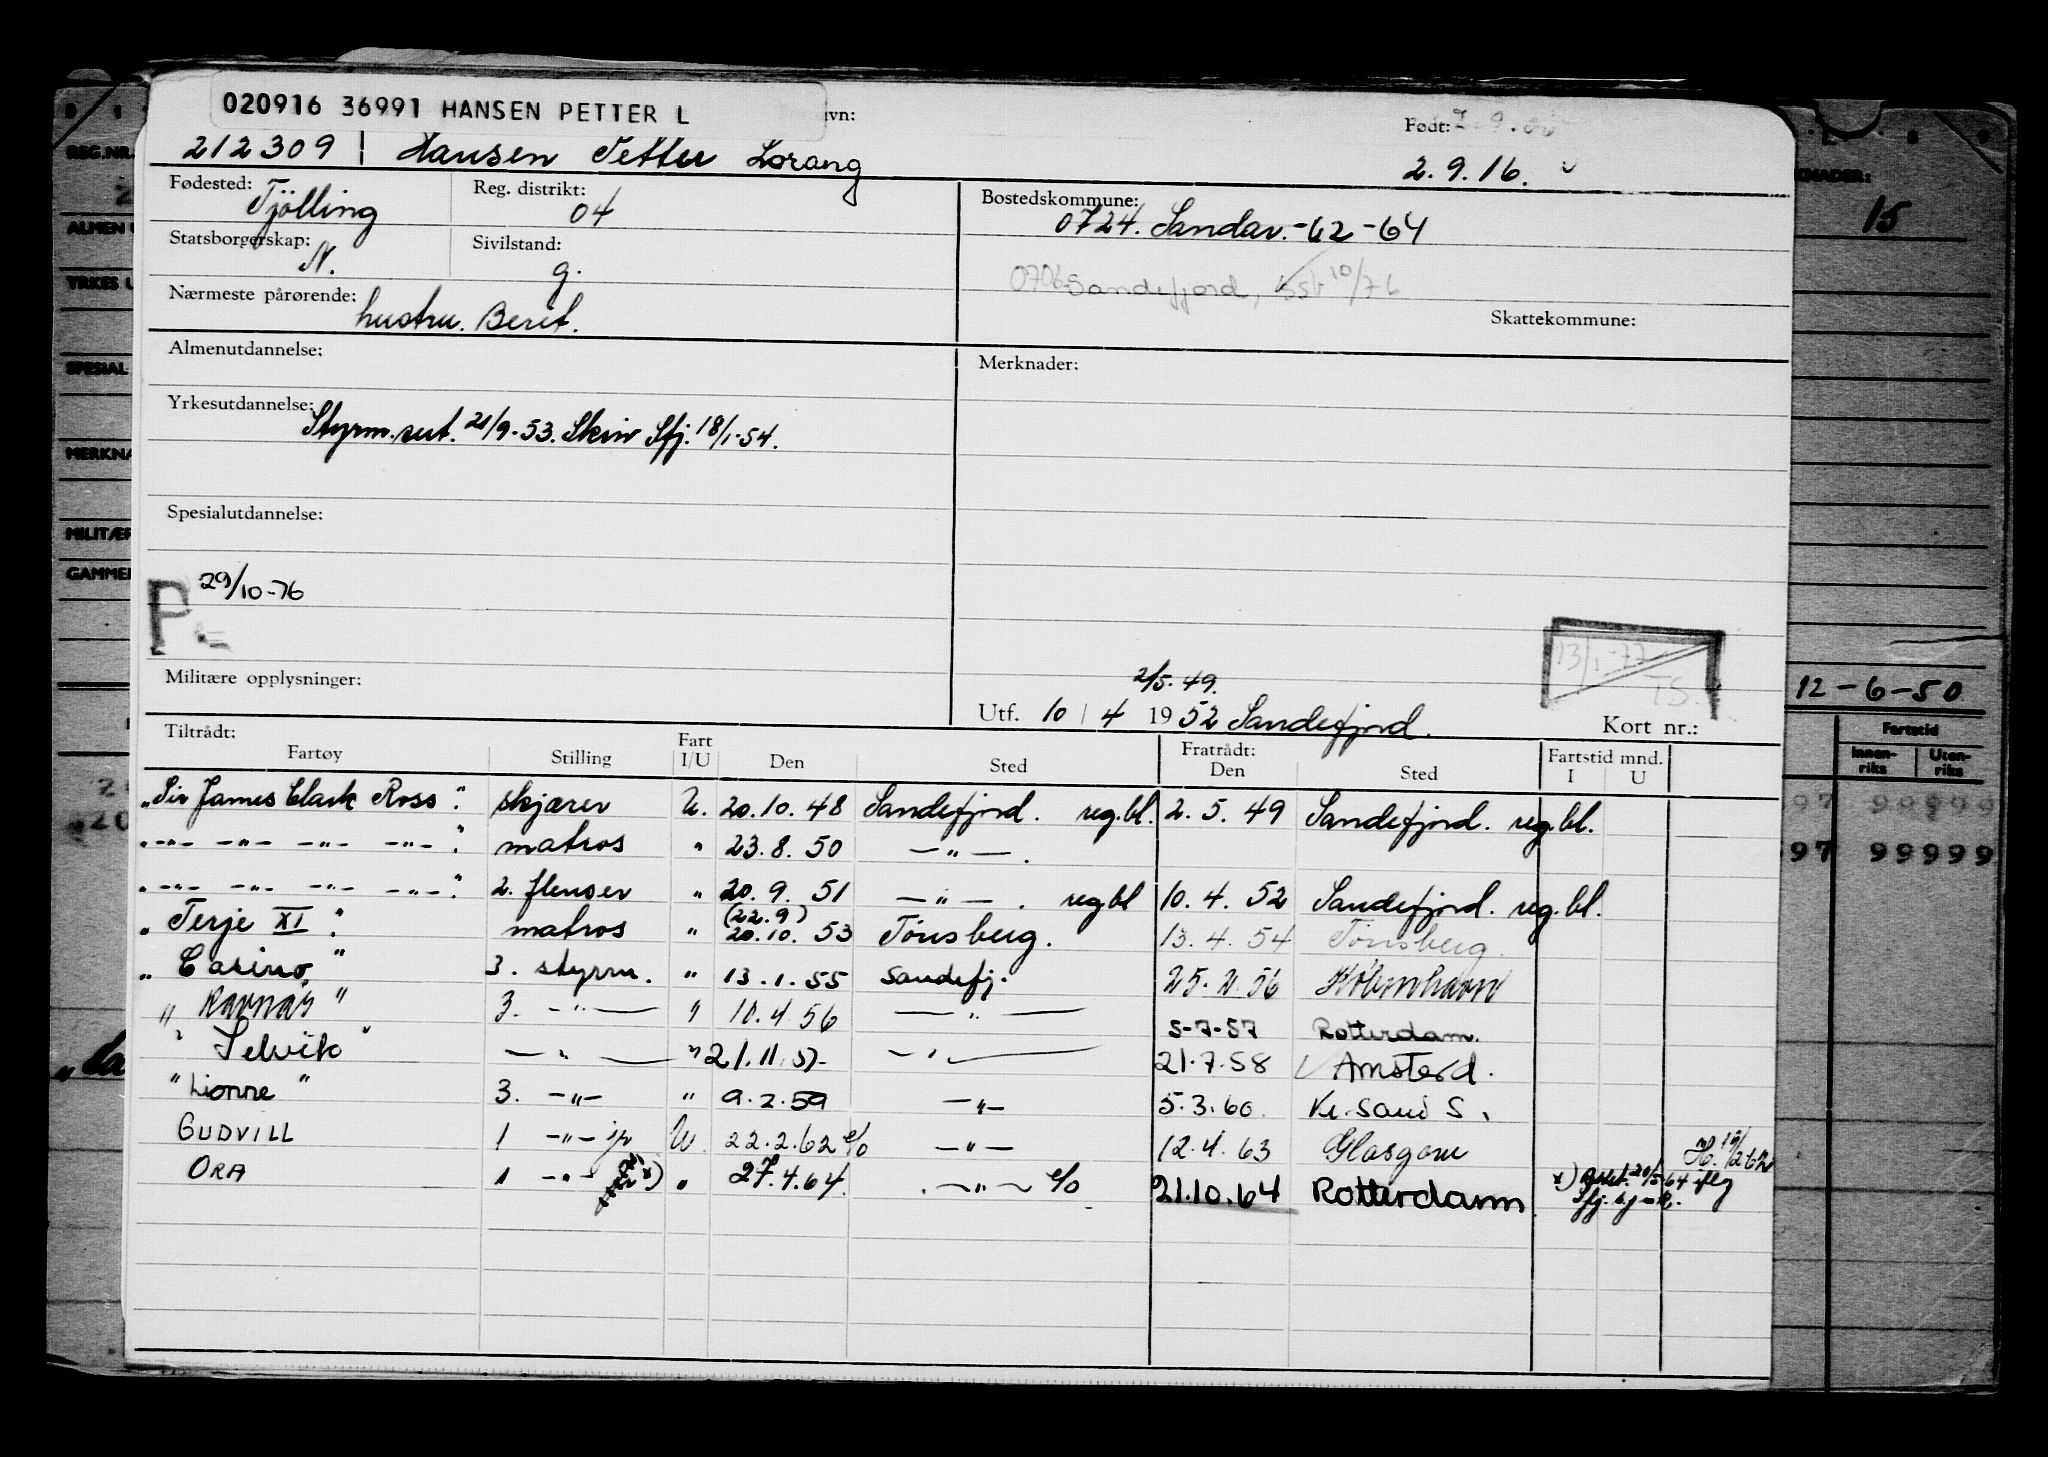 020916 36991 HANSEN PETTER L
vn:
Født:
212309 | Hansen Petter Lorang
2.9.16.
Fødested: Tjölling
Reg. distrikt: 04
Bostedskommune: 0724. Sandar.-62-64
Statsborgerskap: N.
Sivilstand: g.
0706 Sandefjord, 10/76
Nærmeste pårørende: hustru. Berit.
Skattekommune:
Almenutdannelse:
Merknader:
Yrkesutdannelse: Styrm.sert. 21/9-53. Skriv Sfj. 18/1-54.
Spesialutdannelse:
P. 29/10-76
13/1-77
TS.
Militære opplysninger:
2/5.49.
Utf. 10 / 4 1952 Sandefjord.
Kort nr.:
Tiltrådt:
Fartøy Stilling Fart I/U Den Sted Fratrådt: Den Sted Fartstid mnd. I U
"Sir James Clark Ross". skjærer U. 20.10.48 Sandefjord. reg.bl. 2.5.49 Sandefjord. reg.bl.
"-"- -"- -"- -"-". matros " 23.8.50 -"-.
"-"- -"- -"- -"-". 2. flenser " 20.9.51 -"-. reg.bl 10.4.52 Sandefjord. reg.bl.
(22.9)
"Terje XI". matros " 20.10.53 Tönsberg. 13.4.54 Tönsberg.
"Casino" 3. styrm. " 13.1.55 Sandefj. 25.2.56 Köbenhavn
"Ravnås" 3. -"- " 10.4.56 -"- 5-7-57 Rotterdam.
"Selvik" -"- " 21.11.57- -"- 21.7.58 Amsterd.
"Lionne" 3. -"- " 9.2.59 -"- 5.3.60. Kr.sand S.
GUDVILL 1 -"- U. 22.2.62 e/o -"- 12.4.63 Glasgow
ORA 1 -"- x) " 27.4.64. -"- e/o 21.10.64 Rotterdam
x) 20/5-64
Sfj.
REG.NR.
ALMEN
YRKES U
SPESIAL
MERKNA
MILITÆR
GAMMEL
KNADER:
15
12-6-50
Fartstid
Innen-riks
Uten-riks
97 99999
97 99999